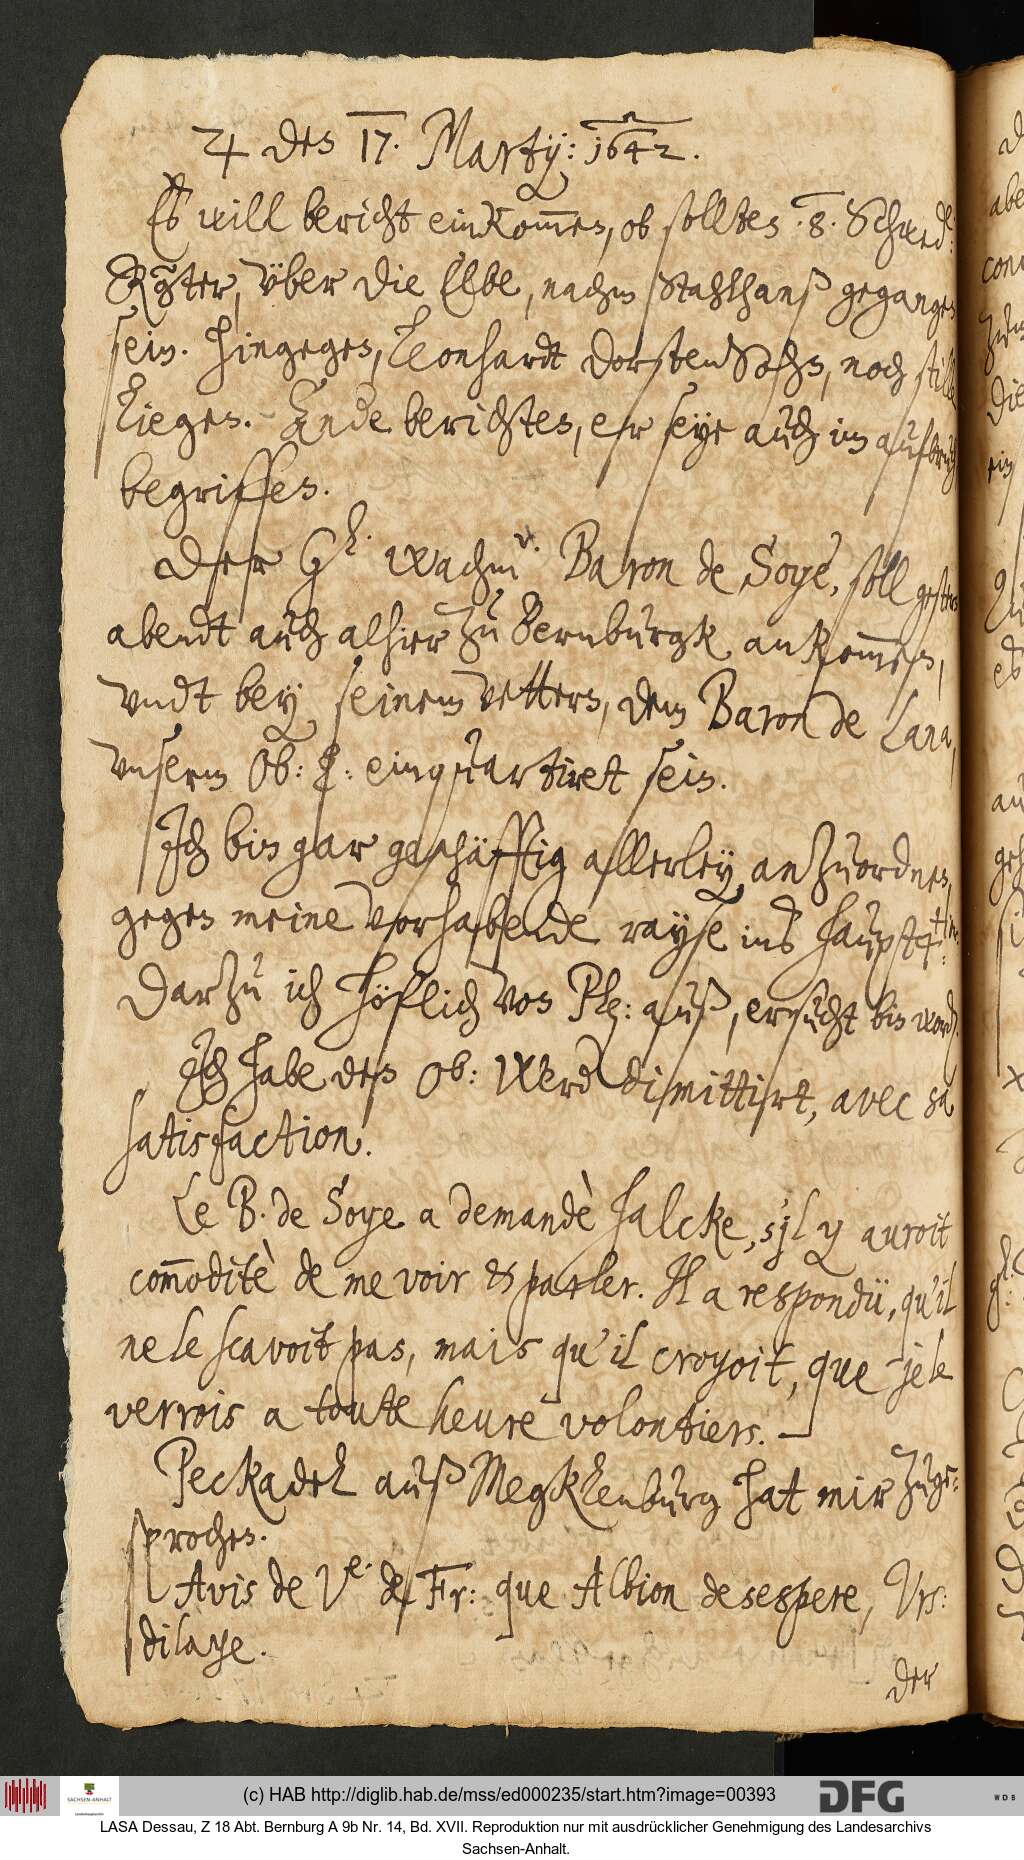 ♃ den 17. Martij: 1642.
Es will bericht einkommen, ob sollten .8. Schwed:
Rgter, über die Elbe, nachm Stahlhanß gegangen
sein. Hingegen, Leonhardt DorstenSohn, noch stille
liegen. Ende berichten, er seye auch im aufbruch
begriffen.
Der G.l. wachmr. Baron de Soye, soll gestern
abendt auch alhier zu Bernburgk ankommen,
vndt bey seinem vettern, dem Baron de Lana,
vnserm Ob: L: einquartiret sein.
Ich bin gar geschäfftig allerley anzuordnen,
gegen meine vorhabende rayse ins Hauptq:
Darzu ich höflich von Plz: auß, ersucht bin word.
Ich habe den Ob: Werd dimittirt, avec sa
satisfaction.
Le B. de Soye a demandè Falcke, s'jl y auroit
commoditè de me voir et parler. Il a respondü, qu'il
ne le scavoit pas, mais qu'il croyoit, que je le
verrois a toute heure volontiers. —
Peckadel auß Megklenburg hat mir zuge-
sprochen.
Avis de Ve. de Fr: que Albion desespere, Vrs:
dilaye.
der
(c) HAB http://diglib.hab.de/mss/ed000235/start.htm?image=00393
DFG
WDB
SACHSEN-ANHALT
LASA Dessau, Z 18 Abt. Bernburg A 9b Nr. 14, Bd. XVII. Reproduktion nur mit ausdrücklicher Genehmigung des Landesarchivs
Sachsen-Anhalt.